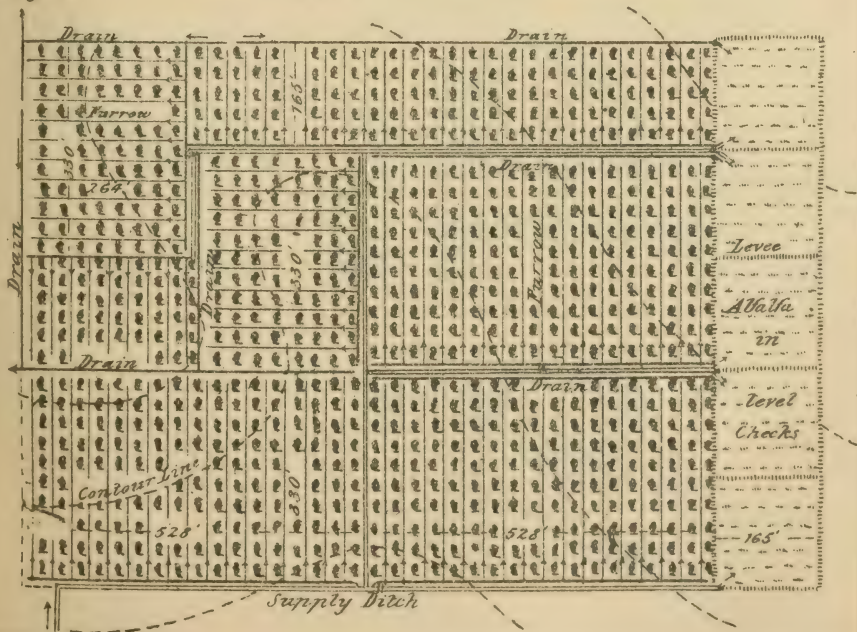 Drain
Drain
165'
Furrow
330'
264'
Drain
Drain
Drain
330'
Furrow
Levee
Alfalfa
in
level
Checks
Drain
Drain
Contour Line
330'
528'
528'
165'
Supply Ditch